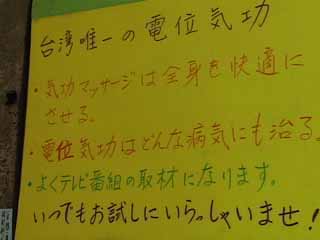 台湾唯一の電位気功
・気功マッサージは全身を快適に
させる。
・電位気功はどんな病気にも治る。
・よくテレビ番組の取材になります。
いつでもお試しにいらっしゃいませ!